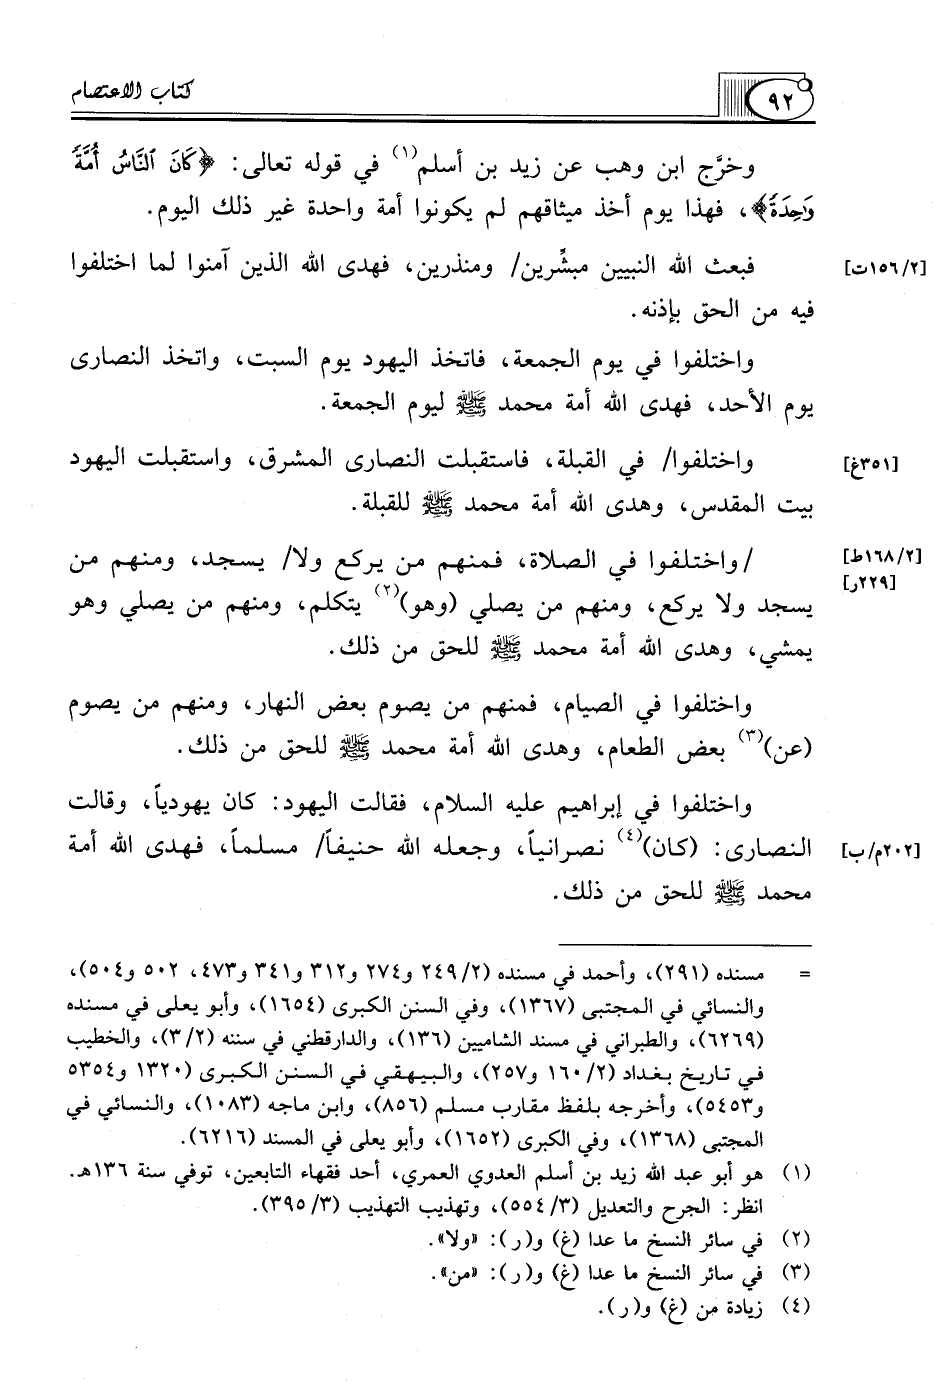 كتاب الاعتصام
٩٢
وخرَّج ابن وهب عن زيد بن أسلم(١) في قوله تعالى: ﴿كَانَ ٱلنَّاسُ أُمَّةً
وَٰحِدَةً﴾، فهذا يوم أخذ ميثاقهم لم يكونوا أمة واحدة غير ذلك اليوم.
فبعث الله النبيين مبشِّرين/ ومنذرين، فهدى الله الذين آمنوا لما اختلفوا
[٢/١٥٦ت]
فيه من الحق بإذنه.
واختلفوا في يوم الجمعة، فاتخذ اليهود يوم السبت، واتخذ النصارى
يوم الأحد، فهدى الله أمة محمد ﷺ ليوم الجمعة.
واختلفوا/ في القبلة، فاستقبلت النصارى المشرق، واستقبلت اليهود
[٣٥١غ]
بيت المقدس، وهدى الله أمة محمد ﷺ للقبلة.
/واختلفوا في الصلاة، فمنهم من يركع ولا/ يسجد، ومنهم من
[٢/١٦٨ط]
[٢٢٩ر]
يسجد ولا يركع، ومنهم من يصلي (وهو)(٢) يتكلم، ومنهم من يصلي وهو
يمشي، وهدى الله أمة محمد ﷺ للحق من ذلك.
واختلفوا في الصيام، فمنهم من يصوم بعض النهار، ومنهم من يصوم
(عن)(٣) بعض الطعام، وهدى الله أمة محمد ﷺ للحق من ذلك.
واختلفوا في إبراهيم عليه السلام، فقالت اليهود: كان يهودياً، وقالت
النصارى: (كان)(٤) نصرانياً، وجعله الله حنيفاً/ مسلماً، فهدى الله أمة
[٢٠٢م/ب]
محمد ﷺ للحق من ذلك.
= مسنده (٢٩١)، وأحمد في مسنده (٢/٢٤٩ و٢٧٤ و٣١٢ و٣٤١ و٤٧٣، ٥٠٢ و٥٠٤)،
والنسائي في المجتبى (١٣٦٧)، وفي السنن الكبرى (١٦٥٤)، وأبو يعلى في مسنده
(٦٢٦٩)، والطبراني في مسند الشاميين (١٣٦)، والدارقطني في سننه (٣/٢)، والخطيب
في تاريخ بغداد (٢/١٦٠ و٢٥٧)، والبيهقي في السنن الكبرى (١٣٢٠ و٥٣٥٤
و٥٤٥٣)، وأخرجه بلفظ مقارب مسلم (٨٥٦)، وابن ماجه (١٠٨٣)، والنسائي في
المجتبى (١٣٦٨)، وفي الكبرى (١٦٥٢)، وأبو يعلى في المسند (٦٢١٦).
(١) هو أبو عبد الله زيد بن أسلم العدوي العمري، أحد فقهاء التابعين، توفي سنة ١٣٦هـ.
انظر: الجرح والتعديل (٣/٥٥٤)، وتهذيب التهذيب (٣/٣٩٥).
(٢) في سائر النسخ ما عدا (غ) و(ر): «ولا».
(٣) في سائر النسخ ما عدا (غ) و(ر): «من».
(٤) زيادة من (غ) و(ر).